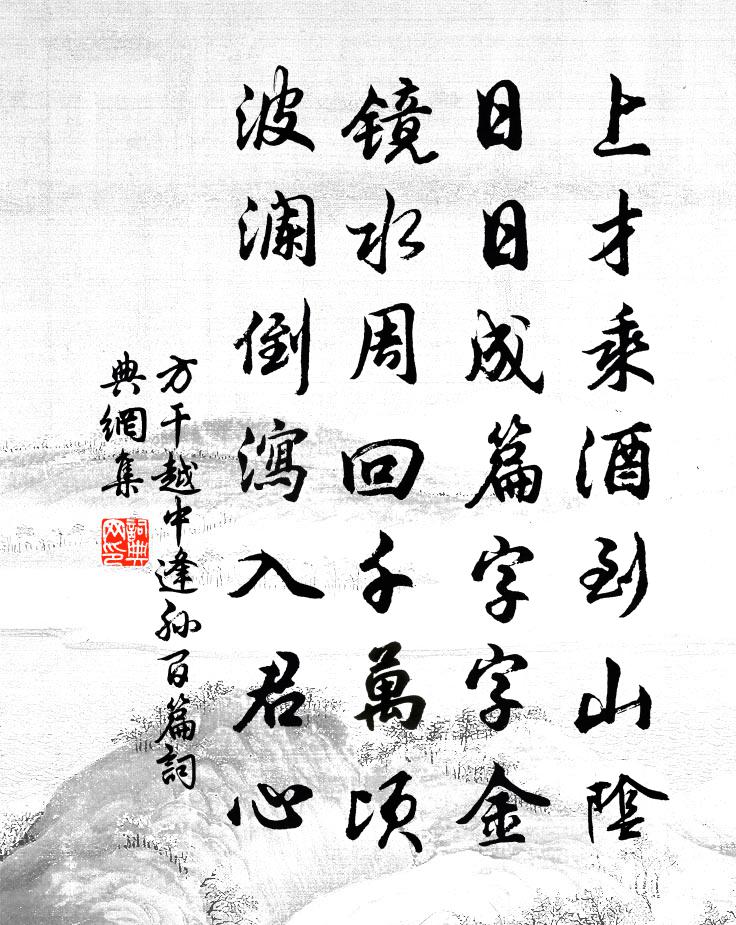 上才乘酒到山陰
日日成篇字字金
鏡水周回千萬頃
波瀾倒瀉入君心
方干越中逢孫百篇詞
典網集
詞典
网印